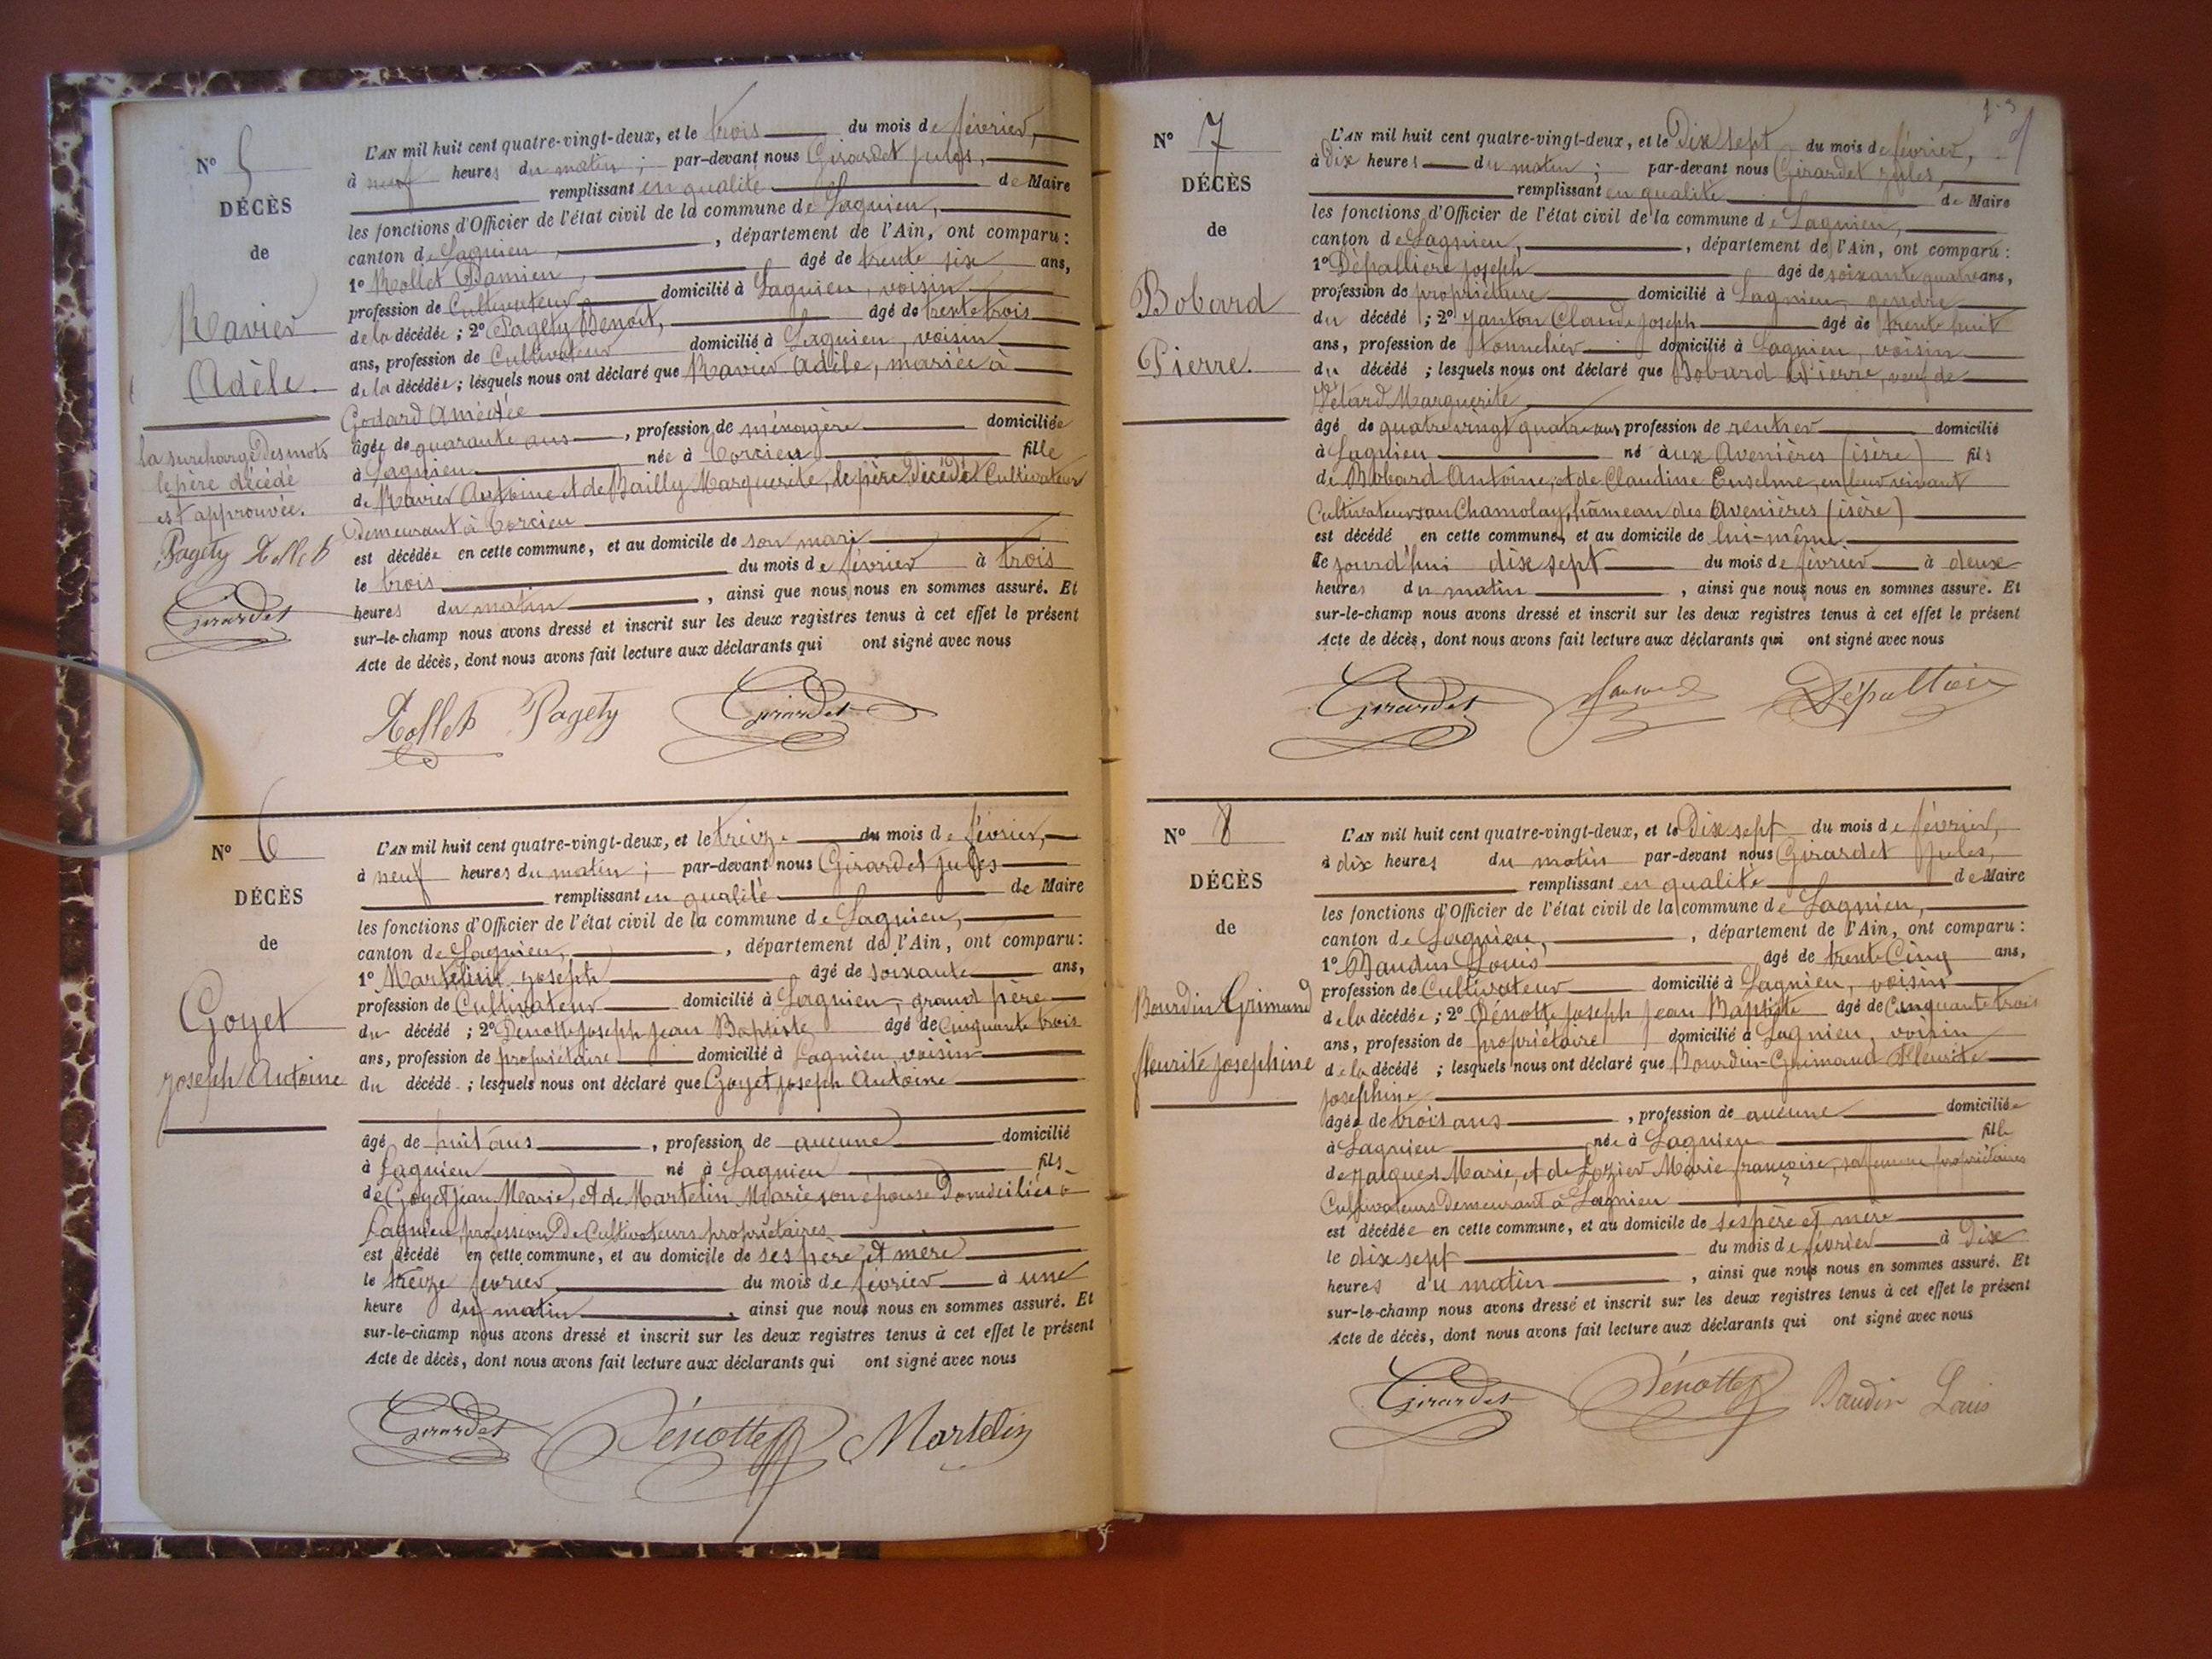 N° 5
DÉCÈS
de
Ravier
Adèle.
la surcharge des mots
le père décédé
est approuvée.
Pagety Rollet
Girardet
L'AN mil huit cent quatre-vingt-deux, et le trois du mois de février,
à neuf heures du matin ; par-devant nous Girardet Jules,
remplissant en qualité de Maire
les fonctions d'Officier de l'état civil de la commune de Lagnieu,
canton de Lagnieu, , département de l'Ain, ont comparu :
1° Rollet Damien, âgé de trente six ans,
profession de Cultivateur domicilié à Lagnieu, voisin
de la décédée ; 2° Pagety Benoit, âgé de trente trois
ans, profession de Cultivateur domicilié à Lagnieu, voisin
de la décédée ; lesquels nous ont déclaré que Ravier Adèle, mariée à
Godard Amédée
âgée de quarante ans , profession de ménagère domiciliée
à Lagnieu née à Torcieu fille
de Ravier Antoine et de Bailly Marguerite, le père décédé Cultivateur
demeurant à Torcieu
est décédée en cette commune, et au domicile de son mari
le trois du mois de février à trois
heures du matin , ainsi que nous nous en sommes assuré. Et
sur-le-champ nous avons dressé et inscrit sur les deux registres tenus à cet effet le présent
Acte de décès, dont nous avons fait lecture aux déclarants qui ont signé avec nous
Rollet Pagety Girardet
N° 6
DÉCÈS
de
Goyet
Joseph Antoine
L'AN mil huit cent quatre-vingt-deux, et le treize du mois de février,
à neuf heures du matin ; par-devant nous Girardet Jules
remplissant en qualité de Maire
les fonctions d'Officier de l'état civil de la commune de Lagnieu,
canton de Lagnieu, , département de l'Ain, ont comparu :
1° Martelin Joseph âgé de soixante ans,
profession de Cultivateur domicilié à Lagnieu, grand père
du décédé ; 2° Dénotte Joseph Jean Baptiste âgé de cinquante trois
ans, profession de propriétaire domicilié à Lagnieu, voisin
du décédé ; lesquels nous ont déclaré que Goyet Joseph Antoine
âgé de huit ans , profession de aucune domicilié
à Lagnieu né à Lagnieu fils
de Goyet Jean Marie, et de Martelin Marie son épouse domiciliés à
Lagnieu, profession de Cultivateurs propriétaires
est décédé en cette commune, et au domicile de ses père et mère
le treize février du mois de février à une
heure du matin , ainsi que nous nous en sommes assuré. Et
sur-le-champ nous avons dressé et inscrit sur les deux registres tenus à cet effet le présent
Acte de décès, dont nous avons fait lecture aux déclarants qui ont signé avec nous
Girardet Dénotte Martelin
N° 7
DÉCÈS
de
Bobard
Pierre.
L'AN mil huit cent quatre-vingt-deux, et le Dix sept du mois de février,
à dix heures du matin ; par-devant nous Girardet Jules,
remplissant en qualité de Maire
les fonctions d'Officier de l'état civil de la commune de Lagnieu,
canton de Lagnieu, , département de l'Ain, ont comparu :
1° Dépallière Joseph âgé de soixante quatre ans,
profession de propriétaire domicilié à Lagnieu, gendre
du décédé ; 2° Janton Claude Joseph âgé de trente huit
ans, profession de tonnelier domicilié à Lagnieu, voisin
du décédé ; lesquels nous ont déclaré que Bobard Pierre, veuf de
Marguerite
âgé de quatre vingt quatre ans profession de rentier domicilié
à Lagnieu né aux Avenières (isère) fils
de Bobard Antoine, et de Claudine Enselme, en leur vivant
Cultivateurs au Chamolay, hameau des Avenières (isère)
est décédé en cette commune, et au domicile de lui-même
le jourd'hui dix sept du mois de février à deux
heures du matin , ainsi que nous nous en sommes assuré. Et
sur-le-champ nous avons dressé et inscrit sur les deux registres tenus à cet effet le présent
Acte de décès, dont nous avons fait lecture aux déclarants qui ont signé avec nous
Girardet Dépallière
N° 8
DÉCÈS
de
Bourdin Grimaud
fleurite Josephine
L'AN mil huit cent quatre-vingt-deux, et le Dix sept du mois de février,
à dix heures du matin par-devant nous Girardet Jules,
remplissant en qualité de Maire
les fonctions d'Officier de l'état civil de la commune de Lagnieu,
canton de Lagnieu, , département de l'Ain, ont comparu :
1° Baudin Louis âgé de trente Cinq ans,
profession de Cultivateur domicilié à Lagnieu, voisin
de la décédée ; 2° Dénotte Joseph Jean Baptiste âgé de Cinquante trois
ans, profession de propriétaire domicilié à Lagnieu, voisin
de la décédé ; lesquels nous ont déclaré que Bourdin-Grimaud Fleurite
Josephine
âgée de trois ans , profession de aucune domiciliée
à Lagnieu née à Lagnieu fille
de Jacques Marie, et de Lozier Marie françoise, sa femme, propriétaires
Cultivateurs demeurant à Lagnieu
est décédée en cette commune, et au domicile de ses père et mère
le dix sept du mois de février à Dix
heures du matin , ainsi que nous nous en sommes assuré. Et
sur-le-champ nous avons dressé et inscrit sur les deux registres tenus à cet effet le présent
Acte de décès, dont nous avons fait lecture aux déclarants qui ont signé avec nous
Girardet Dénotte Baudin Louis